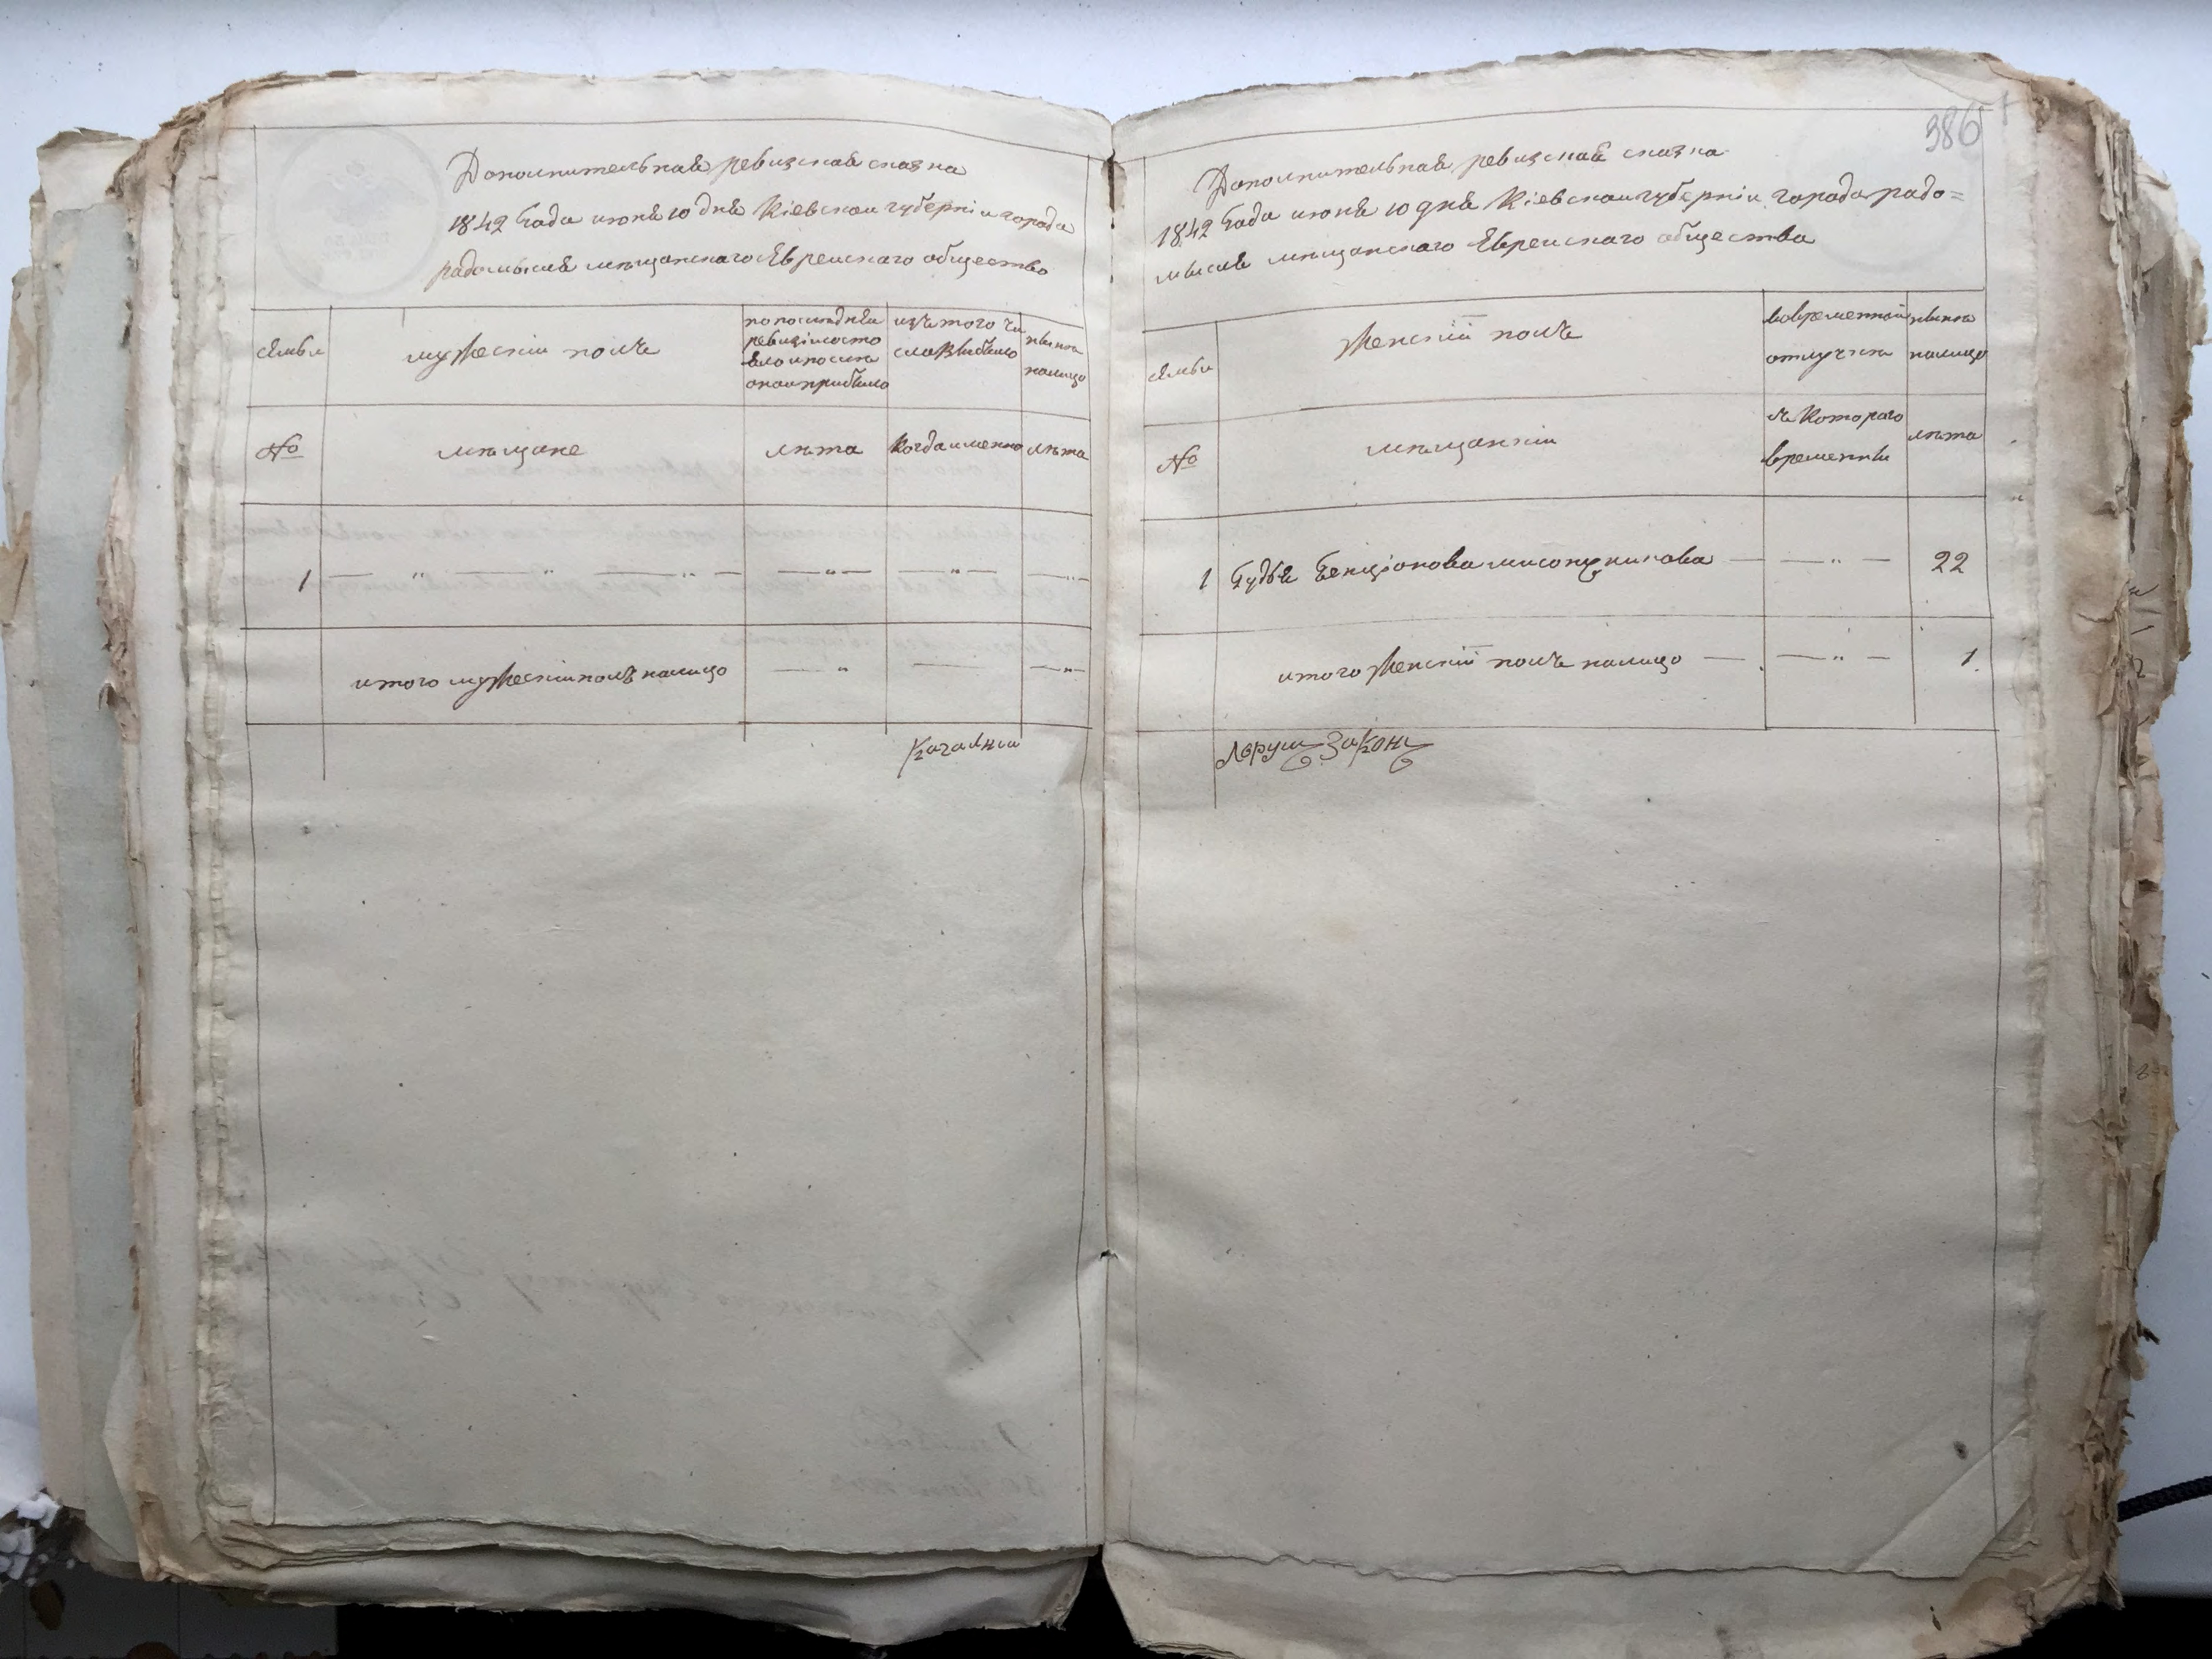 Дополнительная ревизская сказка
1842 Года июня 10 дня Кіевской губерніи города
радомысля мѣщанского Еврейского общество
семьи
мужескій полъ
по последней
ревизіи состо
яло и после
оной прибыло
изъ того чи
сла выбыло
ныне
налицо
№
мѣщане
лѣта
Когда именно
лѣта
1
итого мужескій полъ налицо
Кагалный
386
Дополнительная ревизская сказка
1842 Года июня 10 дня Кіевской губерніи города радо=
мысля мѣщанского Еврейского общества
семьи
Женскій полъ
во временной
отлучке
ныне
налицо
№
мѣщанскій
съ Которого
времени
лѣта
1 Бенціонова 22
итого Женскій полъ налицо 1